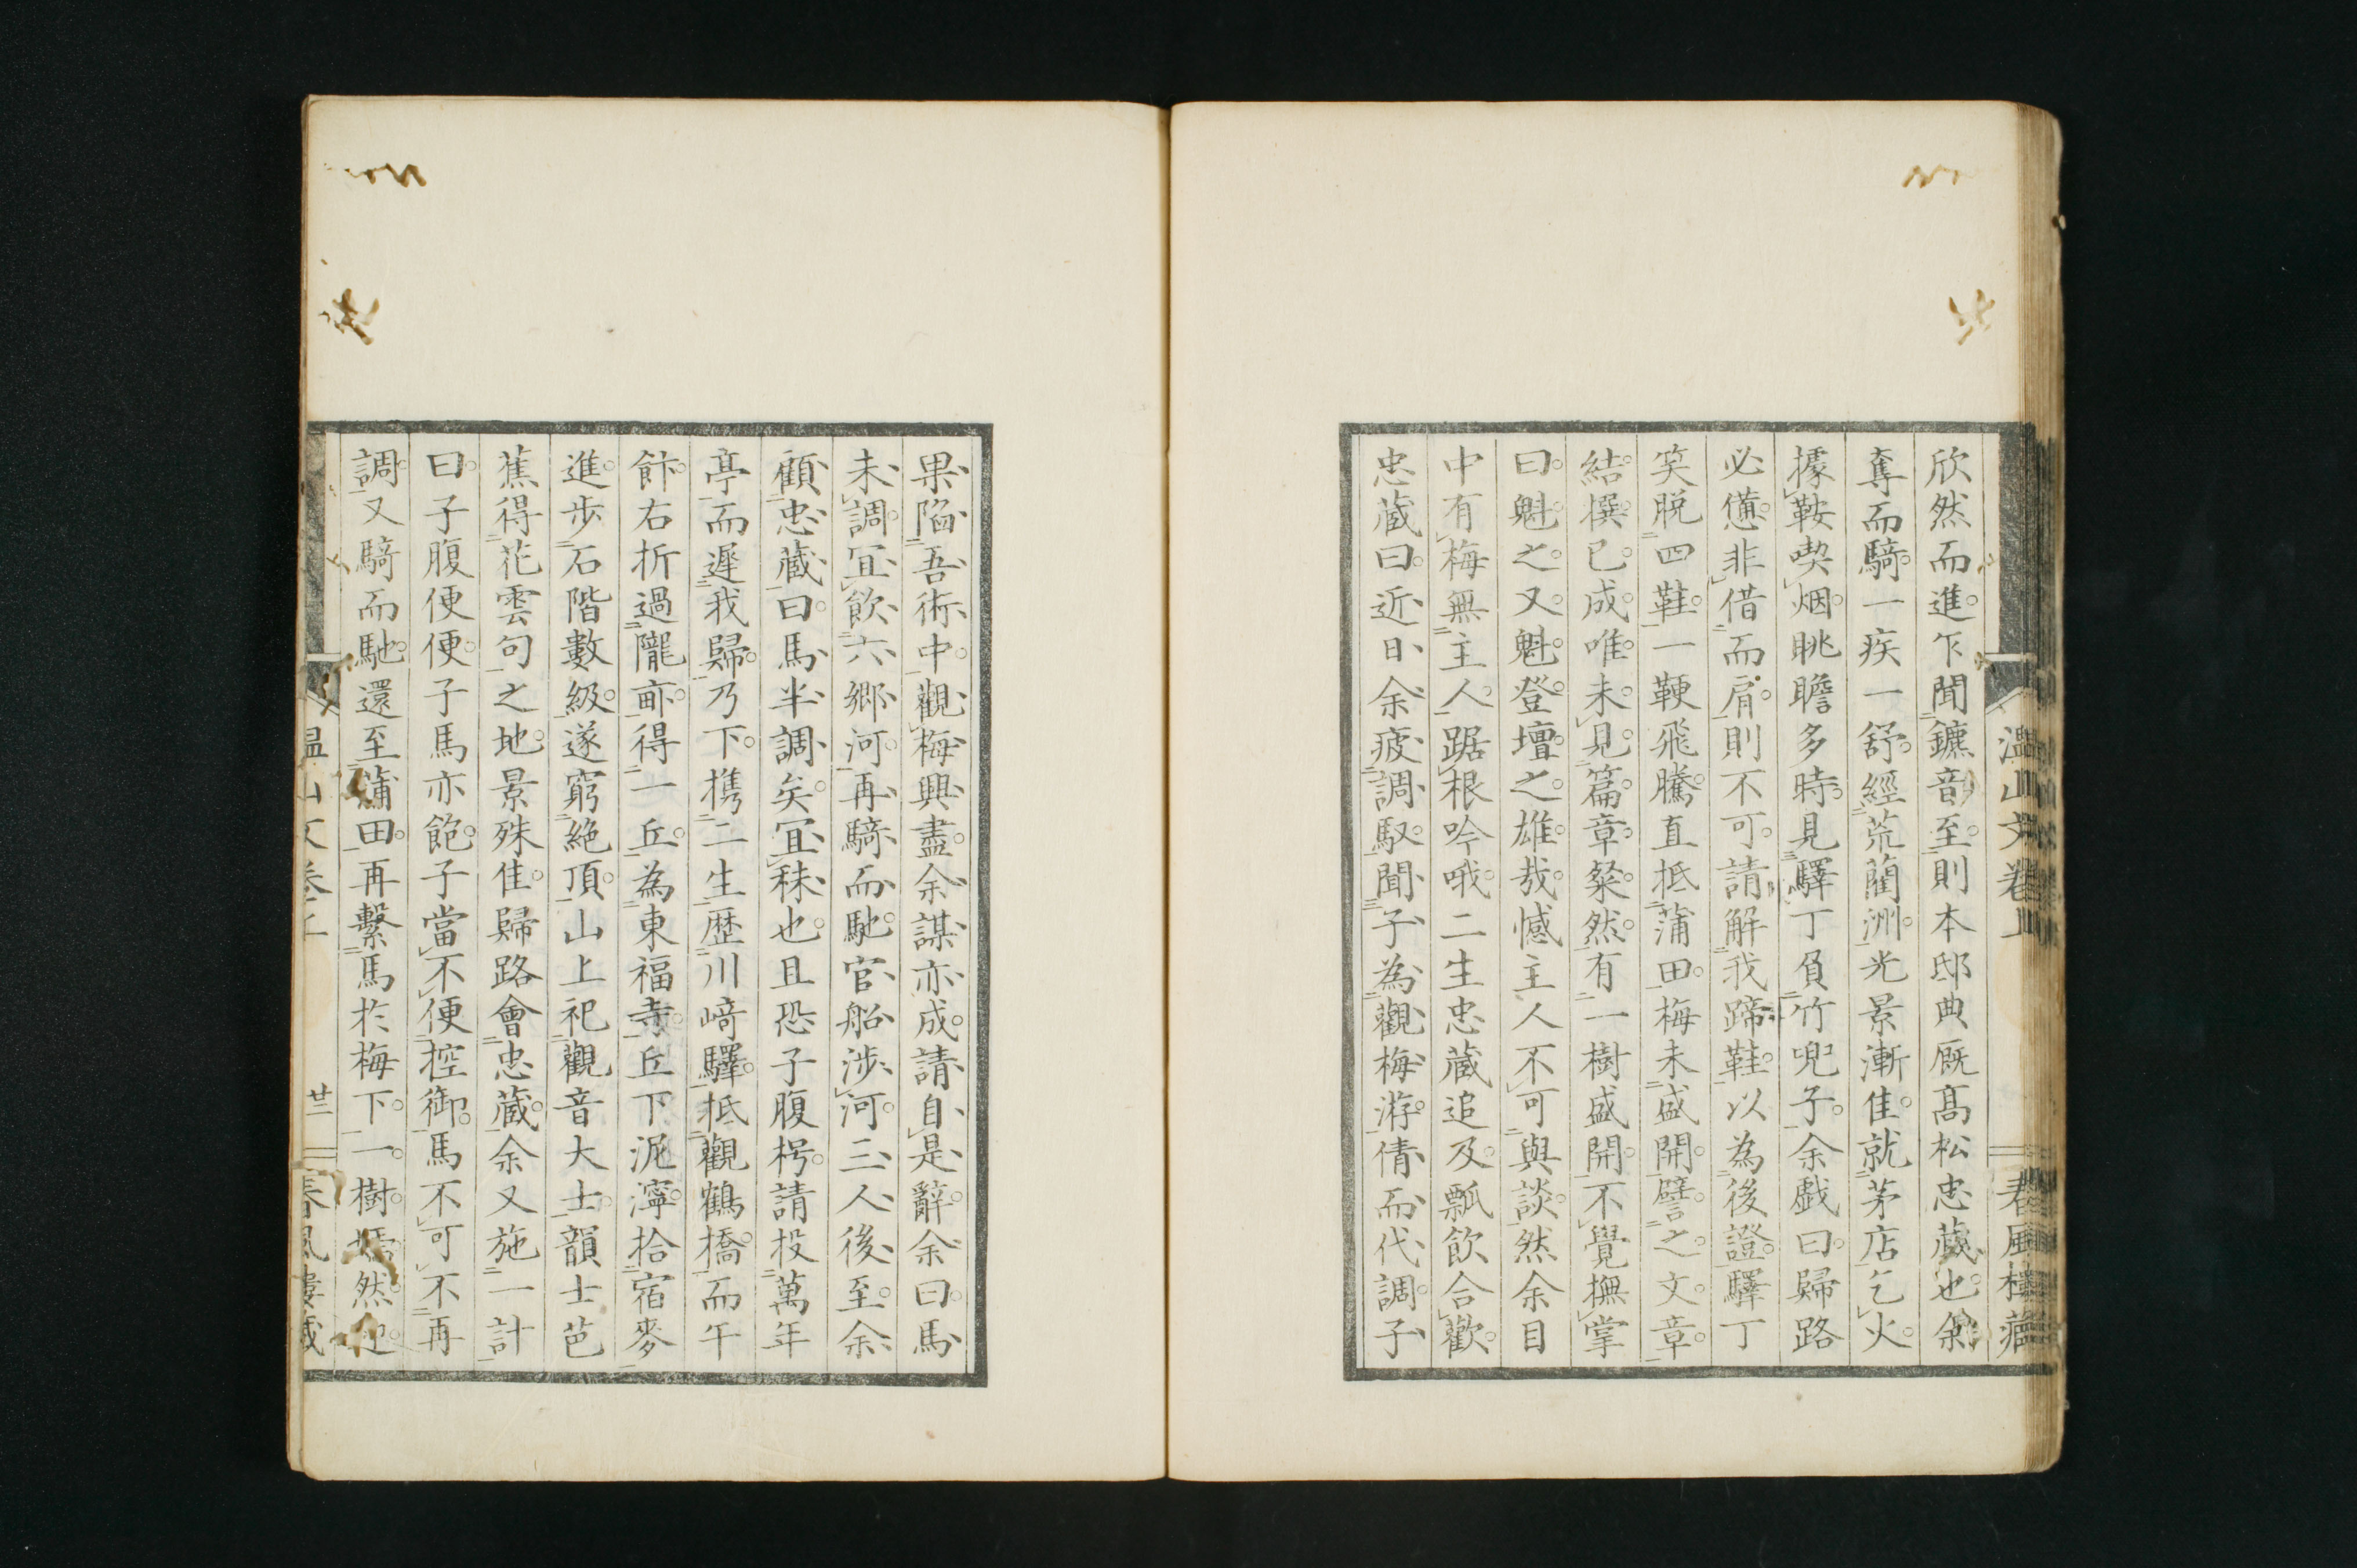 欣然而進。乍聞鑣音至。則本邸典厩高松忠蔵也。余
奪而騎。一疾一舒。經荒藺洲。光景漸佳。就茅店乞火。
據鞍喫烟。眺瞻多時。見驛丁負竹兜子。余戯曰。歸路
必憊。非借而肩。則不可。請解我蹄鞋。以為後證。驛丁
笑脱四鞋。一鞭飛騰。直抵蒲田。梅未盛開。譬之文章。
結撰已成。唯未見篇章粲然。有一樹盛開。不覺撫掌
曰。魁之又魁。登壇之雄哉。憾主人不可與談。然余目
中有梅無主人。踞根吟哦。二生忠蔵追及。瓢飲合歡。
忠蔵曰。近日余疲調馭。聞子為觀梅游。倩而代調。子
果陥吾術中。觀梅興盡。余謀亦成。請自是辭。余曰。馬
未調。宜飲六郷河。再騎而馳。官船渉河。三人後至。余
顧忠蔵曰。馬半調矣。宜秣也。且恐子腹枵。請投萬年
亭而遲我歸。乃下携二生。歴川﨑驛。抵觀鶴橋。而午
飰。右折過隴畝。得一丘。為東福寺。丘下泥濘。拾宿麥
進歩。石階數級。遂窮絶頂。山上祀觀音大士。韻士芭
蕉得花雲句之地。景殊佳。歸路會忠蔵。余又施一計
曰。子腹便便。子馬亦飽。子當不便控御。馬不可不再
調。又騎而馳。還至蒲田。再繫馬於梅下。一樹然
温山文巻上
春風樓藏
廿二